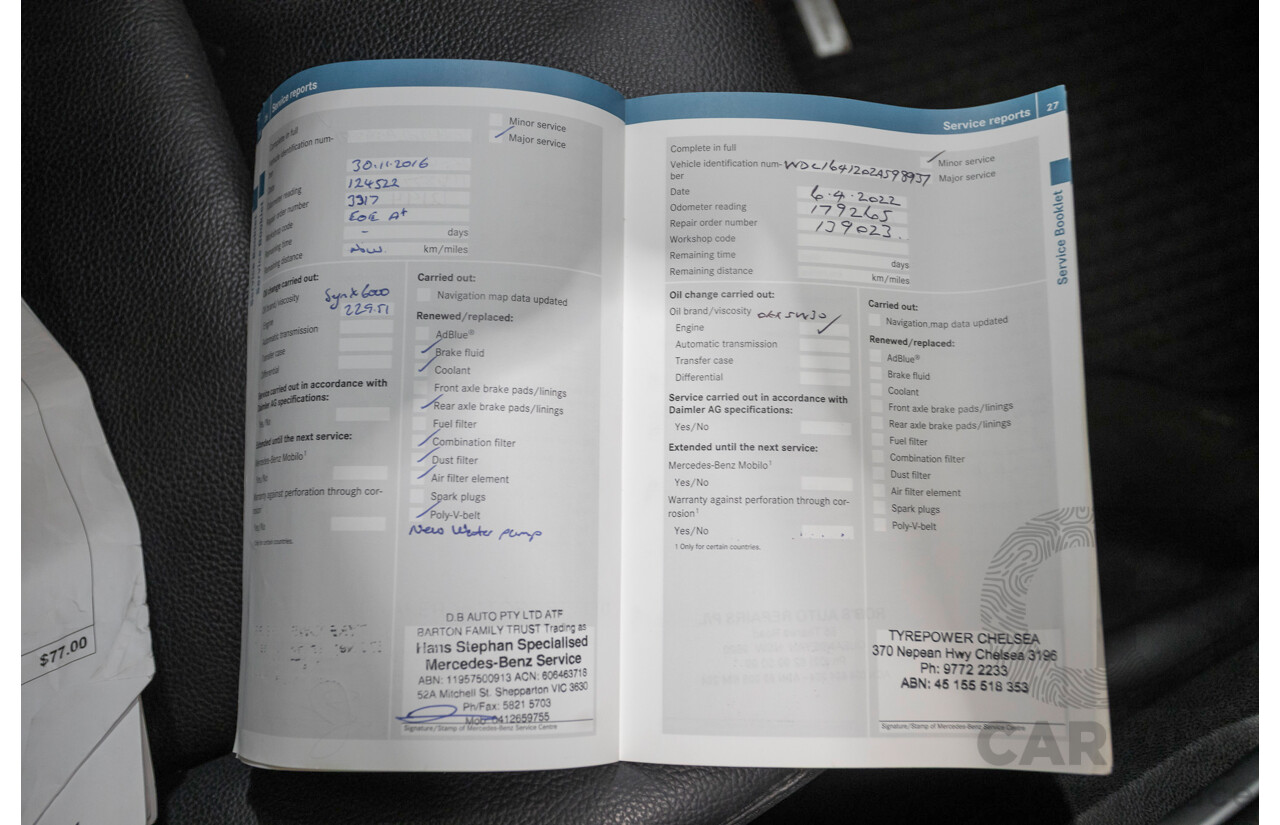 Service reports
Complete in full
Vehicle identification num-
30.11.2016
124522
3317
EOE A+
-
days
Now
km/miles
Minor service
Major service
Oil change carried out:
Oil brand/viscosity
Synx 6000
Engine
229.51
Automatic transmission
Transfer case
Differential
Service carried out in accordance with
Daimler AG specifications:
Yes/No
Extended until the next service:
Mercedes-Benz Mobilo1
Yes/No
Warranty against perforation through cor-
rosion1
Yes/No
Carried out:
Navigation map data updated
Renewed/replaced:
AdBlue®
Brake fluid
Coolant
Front axle brake pads/linings
Rear axle brake pads/linings
Fuel filter
Combination filter
Dust filter
Air filter element
Spark plugs
Poly-V-belt
New Water pump
D.B AUTO PTY LTD ATF
BARTON FAMILY TRUST Trading as
Hans Stephan Specialised
Mercedes-Benz Service
ABN: 11957500913 ACN: 606463718
52A Mitchell St. Shepparton VIC 3630
Ph/Fax: 5821 5703
Mob: 0412659755
Signature/Stamp of Mercedes-Benz Service Centre
Service reports 27
Complete in full
Vehicle identification num-
ber
WDC1641202A598937
Minor service
Major service
Date 6.4.2022
Odometer reading 179265
Repair order number 139023.
Workshop code
Remaining time
days
Remaining distance
km/miles
Oil change carried out:
Oil brand/viscosity 5W30
Engine
Automatic transmission
Transfer case
Differential
Service carried out in accordance with
Daimler AG specifications:
Yes/No
Extended until the next service:
Mercedes-Benz Mobilo1
Yes/No
Warranty against perforation through cor-
rosion1
Yes/No
1 Only for certain countries.
Carried out:
Navigation map data updated
Renewed/replaced:
AdBlue®
Brake fluid
Coolant
Front axle brake pads/linings
Rear axle brake pads/linings
Fuel filter
Combination filter
Dust filter
Air filter element
Spark plugs
Poly-V-belt
TYREPOWER CHELSEA
370 Nepean Hwy Chelsea 3196
Ph: 9772 2233
ABN: 45 155 518 353
Signature/Stamp of Mercedes-Benz Service Centre
Service Booklet
$77.00
CAR